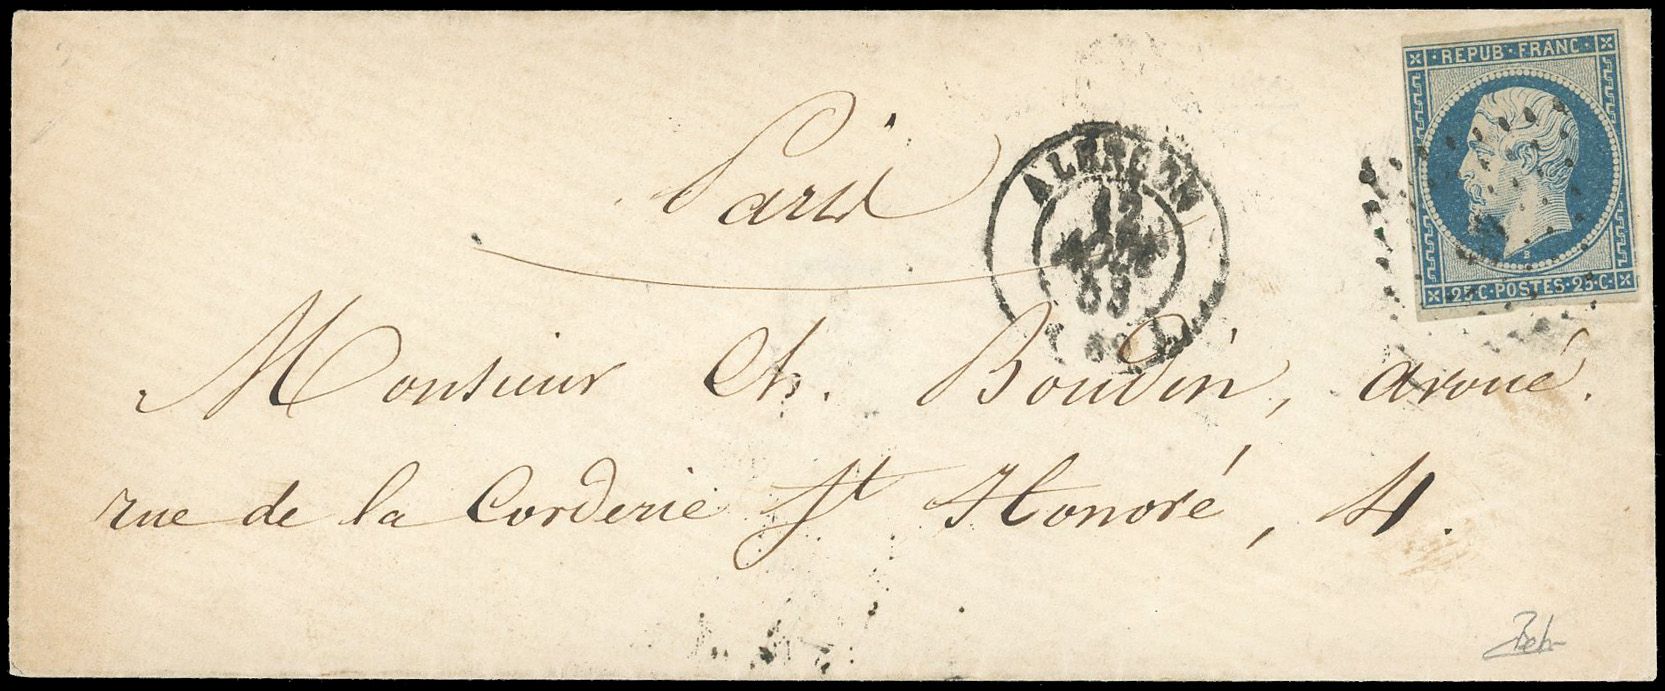 REPUB·FRANC·
25·C·POSTES·25·C·
Paris
ALENÇON
12
AOUT
53
Monsieur Ch. Boudin, avoué.
rue de la Corderie St Honoré, 4.